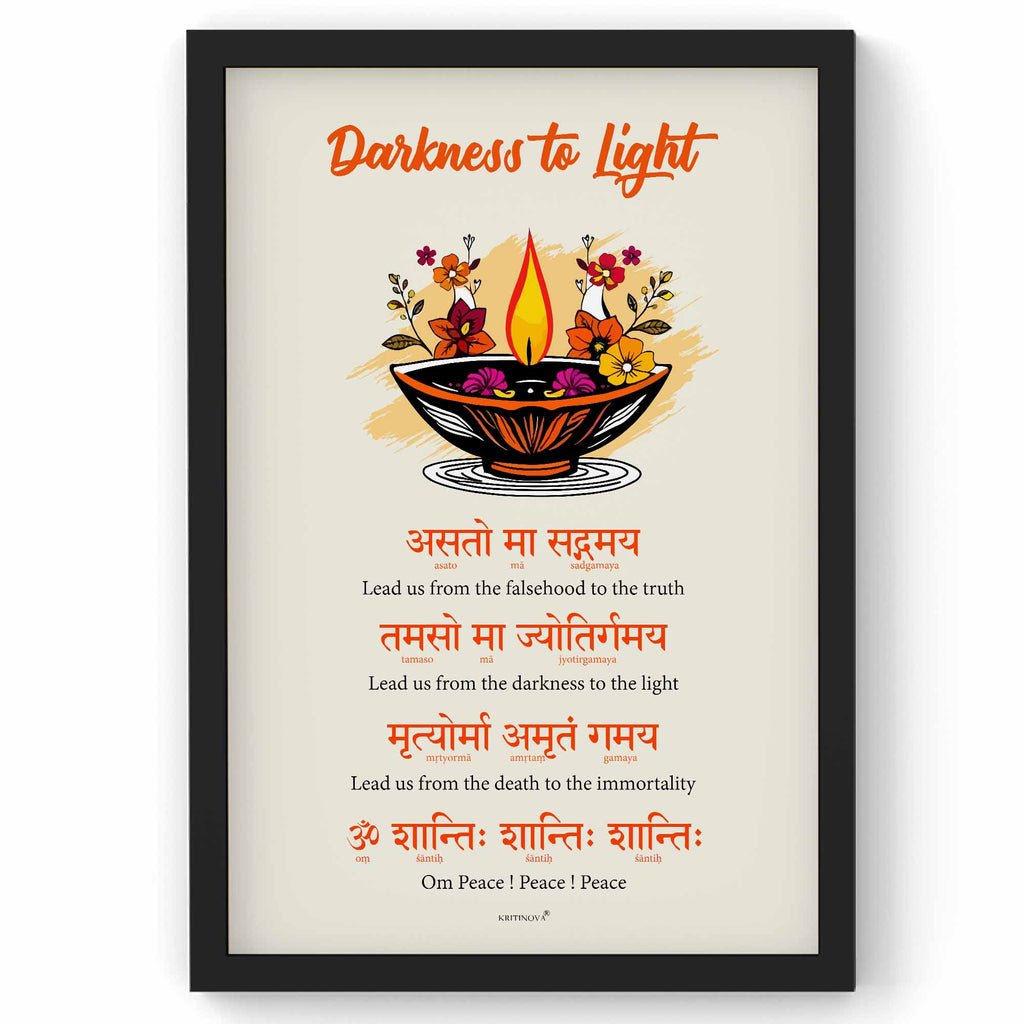 Darkness to Light
असतो मा सद्गमय
asato mā sadgamaya
Lead us from the falsehood to the truth
तमसो मा ज्योतिर्गमय
tamaso mā jyotirgamaya
Lead us from the darkness to the light
मृत्योर्मा अमृतं गमय
mṛtyormā amṛtaṃ gamaya
Lead us from the death to the immortality
ॐ शान्तिः शान्तिः शान्तिः
oṃ śāntiḥ śāntiḥ śāntiḥ
Om Peace ! Peace ! Peace
KRITINOVA®